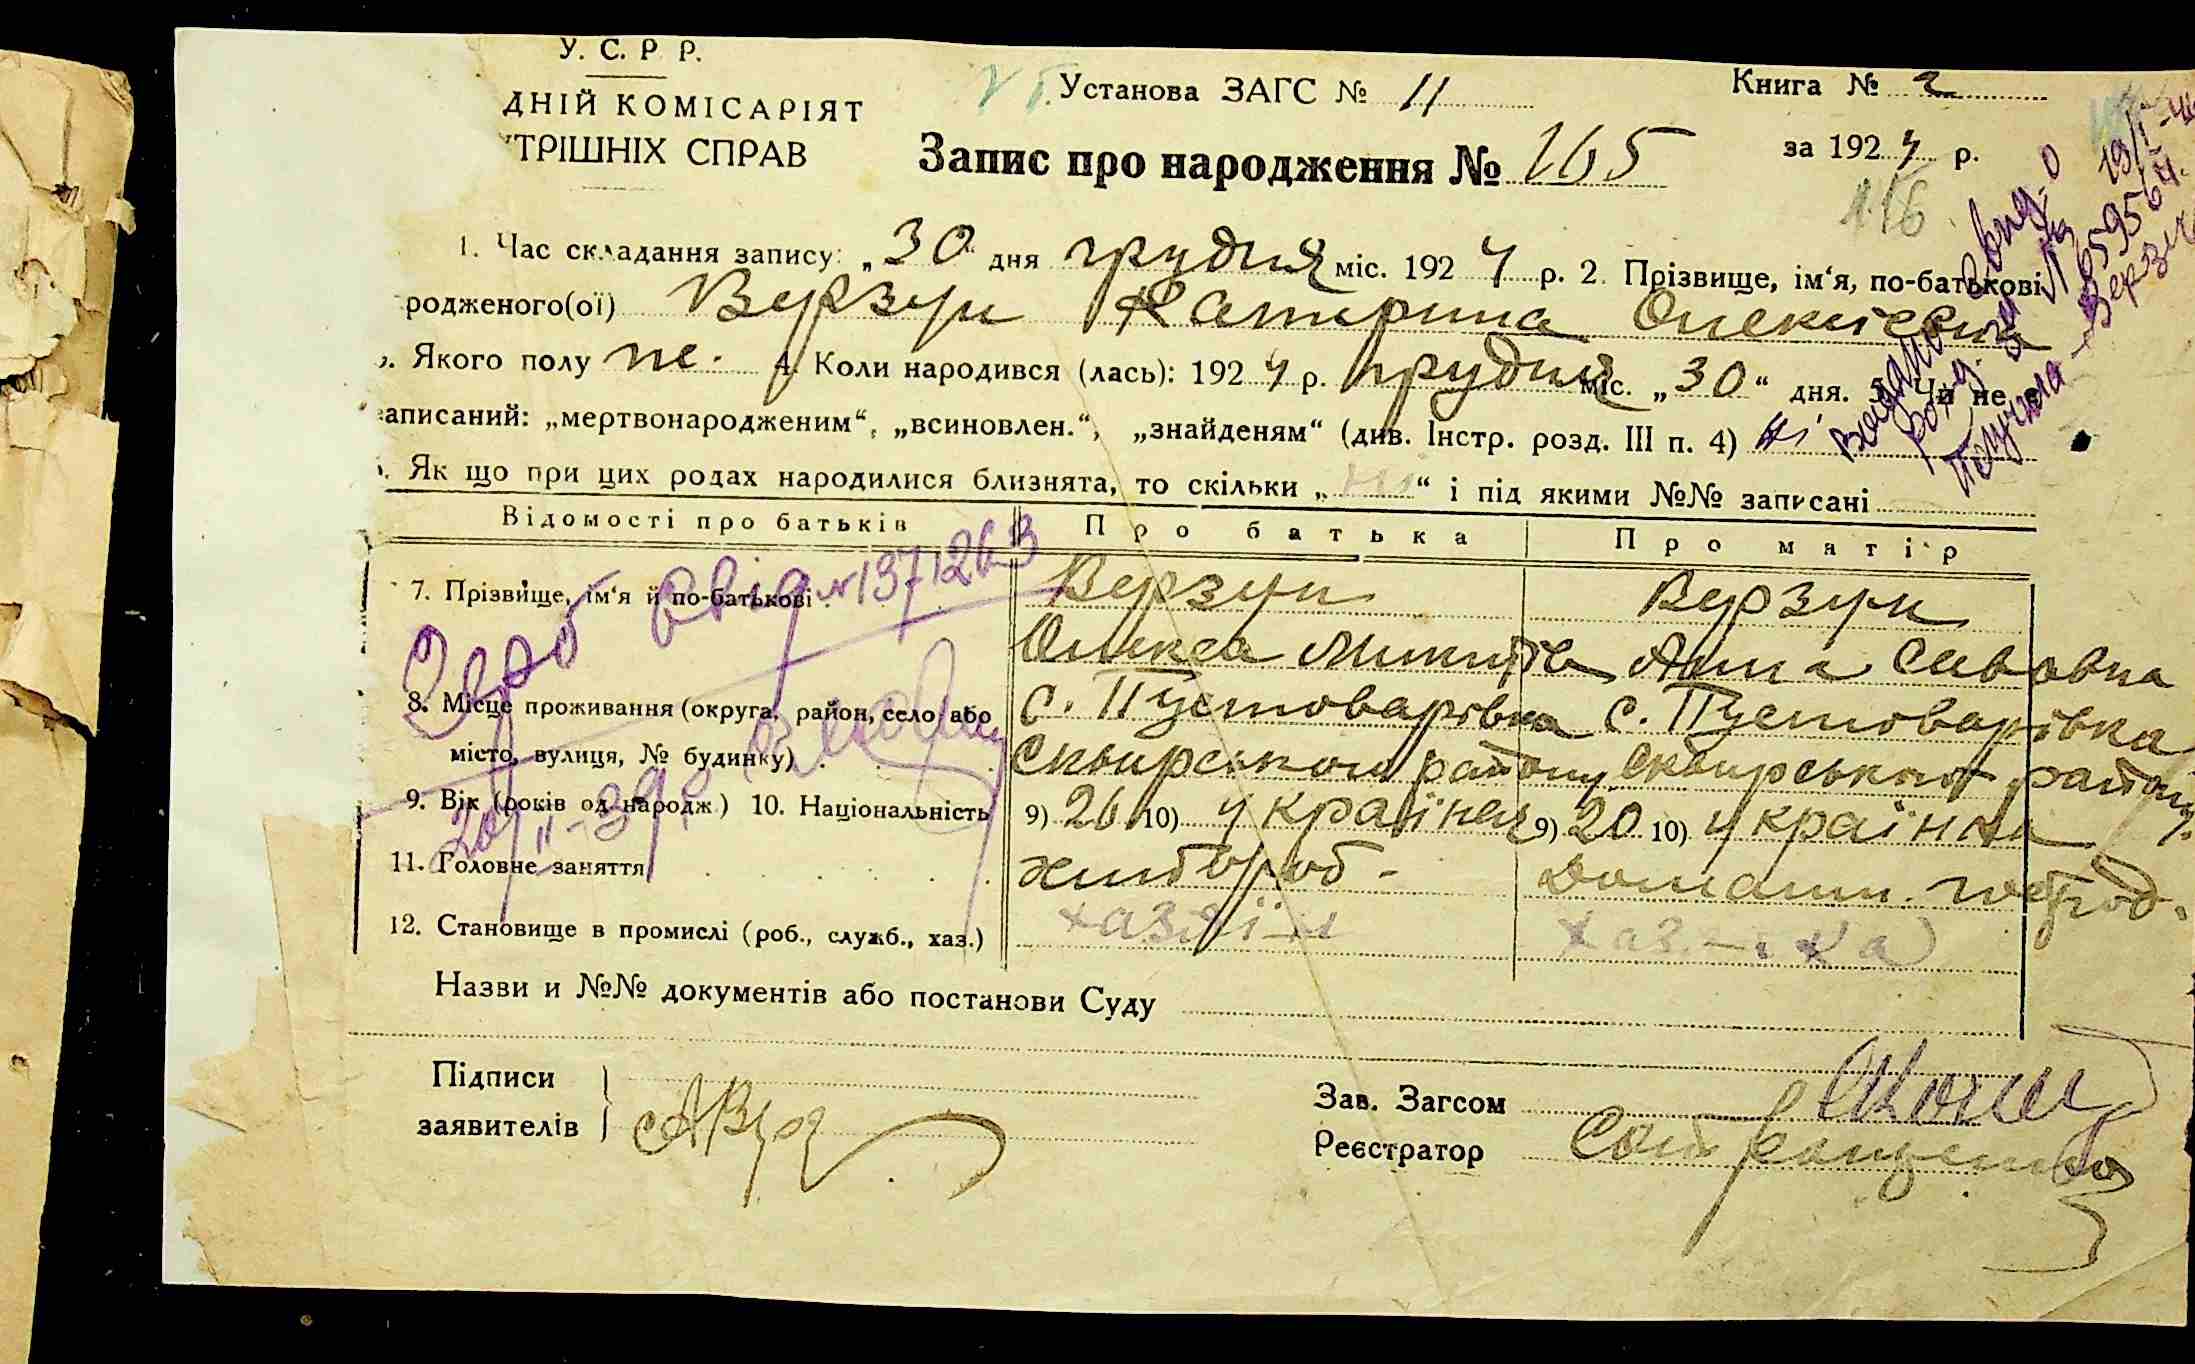 У. С. Р. Р.
ДНІЙ КОМІСАРІЯТ
ТРІШНІХ СПРАВ
Установа ЗАГС № 11
Книга № 2
за 1924 р.
Запис про народження № 165
116
1. Час складання запису: „30“ дня грудня міс. 1924 р. 2. Прізвище, ім‘я, по-батькові
родженого(ої) Верзун Катерина Олексіевна
Якого полу же. 4. Коли народився (лась): 1924 р. грудня міс. „30“ дня. 5. Чи не є
аписаний: „мертвонародженим“, „всиновлен.“, „знайденям“ (див. Інстр. розд. III п. 4) Ні
Як що при цих родах народилися близнята, то скільки „Ні“ і під якими №№ записані
Відомості про батьків Про батька Про матір
7. Прізвище, ім‘я й по-батькові Верзун Верзун
Олекса Микитів Анна Савовна
8. Місце проживання (округа, район, село або с. Пустоварівка с. Пустоварівка
місто, вулиця, № будинку) Сквирського району Сквирського району
9. Вік (років од народж.) 10. Національність 9) 26 10) українец 9) 20 10) українка
11. Головне заняття хлібороб. Домашн. господ.
12. Становище в промислі (роб., служб., хаз.) хазяїн хаз-ка
Назви и №№ документів або постанови Суду
Підписи
заявителів
Зав. Загсом
Реєстратор
№ 1371263